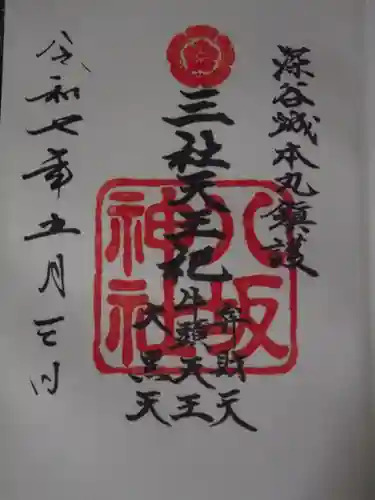 深谷城本丸鎮護
三社天王祀
年財天
牛頭天王
大黒天
八坂
神社
令和七年五月三日